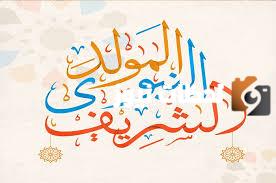 المولد
النبوى
والشريف